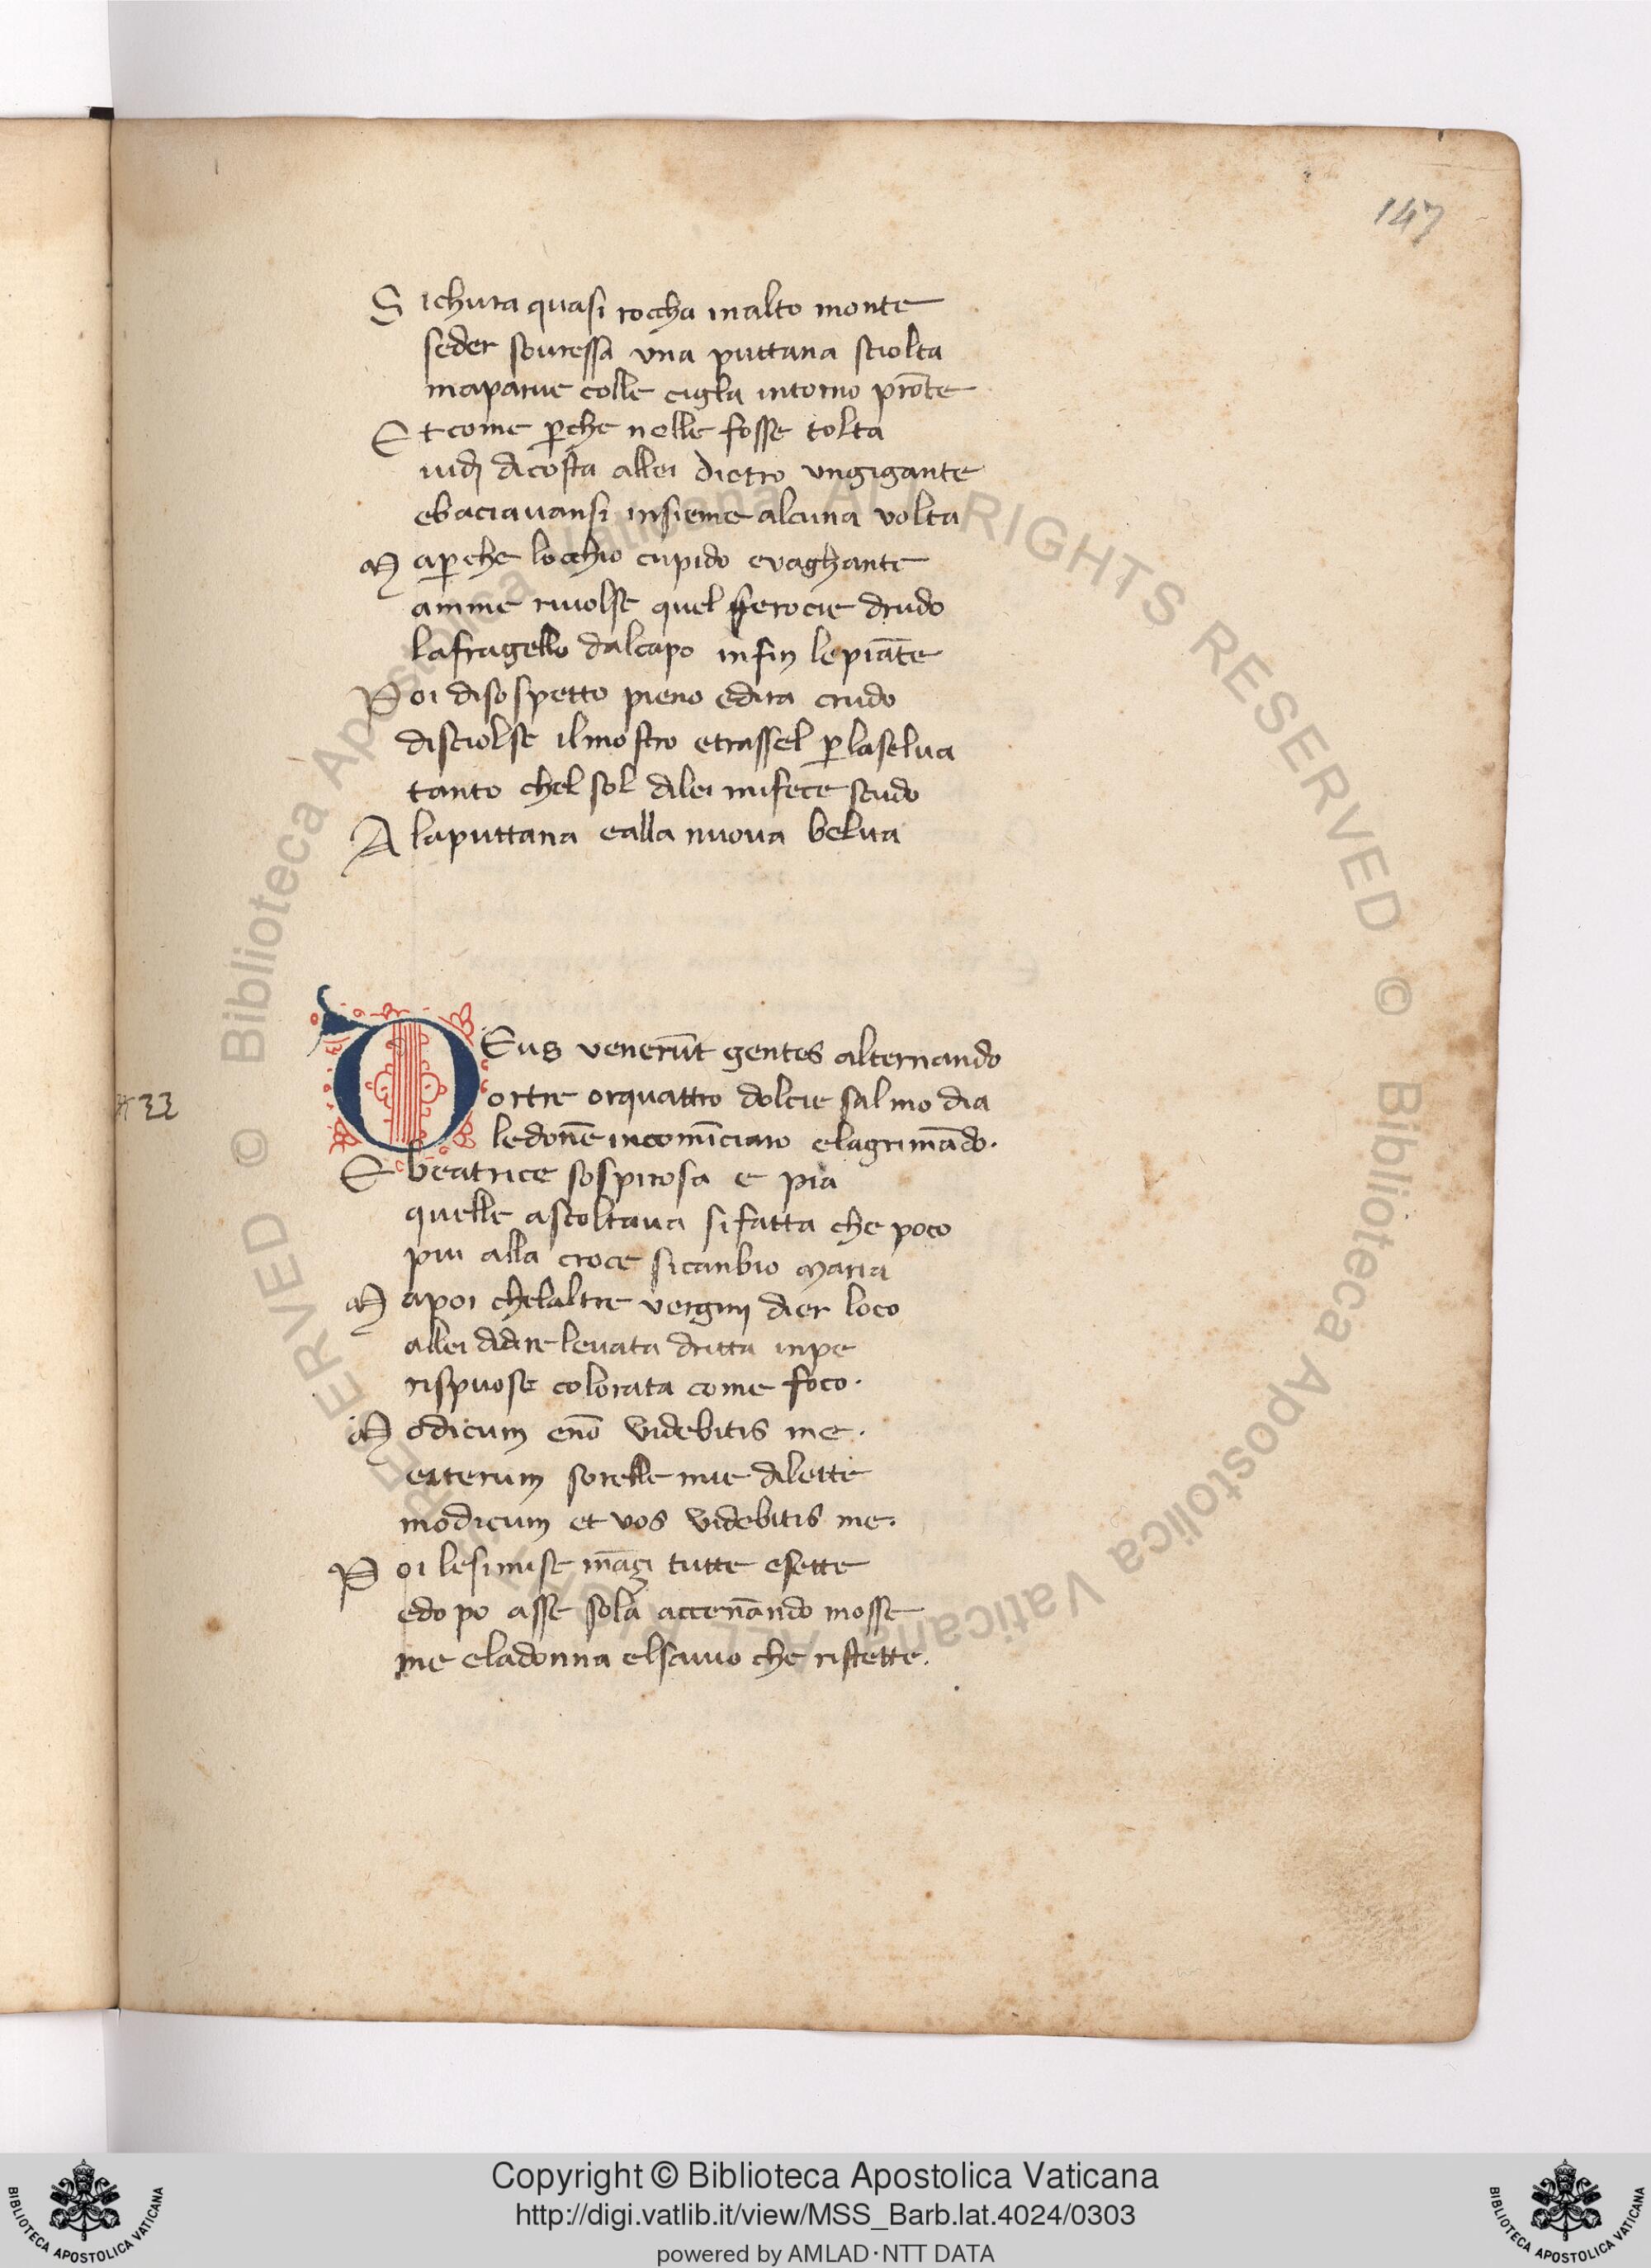 147
Sichura quasi roccha inalto monte
seder souressa una puttana sciolta
maparue colle cigla intorno prōte
Et come ꝑche nolle fosse tolta
uidj dicosta allei dietro ungigante
ebaciauansi insieme alcuna volta
Maꝑche locchio cupido evaghante
amme riuolse quel ferocie drudo
lafragello dalcapo infin lepiāte
Poi disospetto pieno edira crudo
disciolse ilmostro etrassel ꝑlaselua
tanto chel sol dilei mifece scudo
Alaputtana ealla nuova belua
DEus venerūt gentes alternando
ortre orquattro dolcie salmodia
33
ledonē incomīciaro elagrimādo.
E beatrice sospirosa e pia
quelle ascoltaua sifatta che poco
piu alla croce sicanbio Maria
Mapoi chelaltre vergini dier loco
allei didire leuata dritta inpe
rispuose colorata come foco.
Modicum enō videbitis me.
eiterum sorelle mie dilette
modicum et vos videbitis me.
Poi lesimise māçi tutte esette
edopo asse sola accenādo mosse
me eladonna elsauio che ristette.
© Biblioteca Apostolica Vaticana ALL RIGHTS RESERVED © Biblioteca Apostolica Vaticana ALL RIGHTS RESERVED
Copyright © Biblioteca Apostolica Vaticana
http://digi.vatlib.it/view/MSS_Barb.lat.4024/0303
powered by AMLAD·NTT DATA
BIBLIOTECA APOSTOLICA VATICANA
BIBLIOTECA APOSTOLICA VATICANA